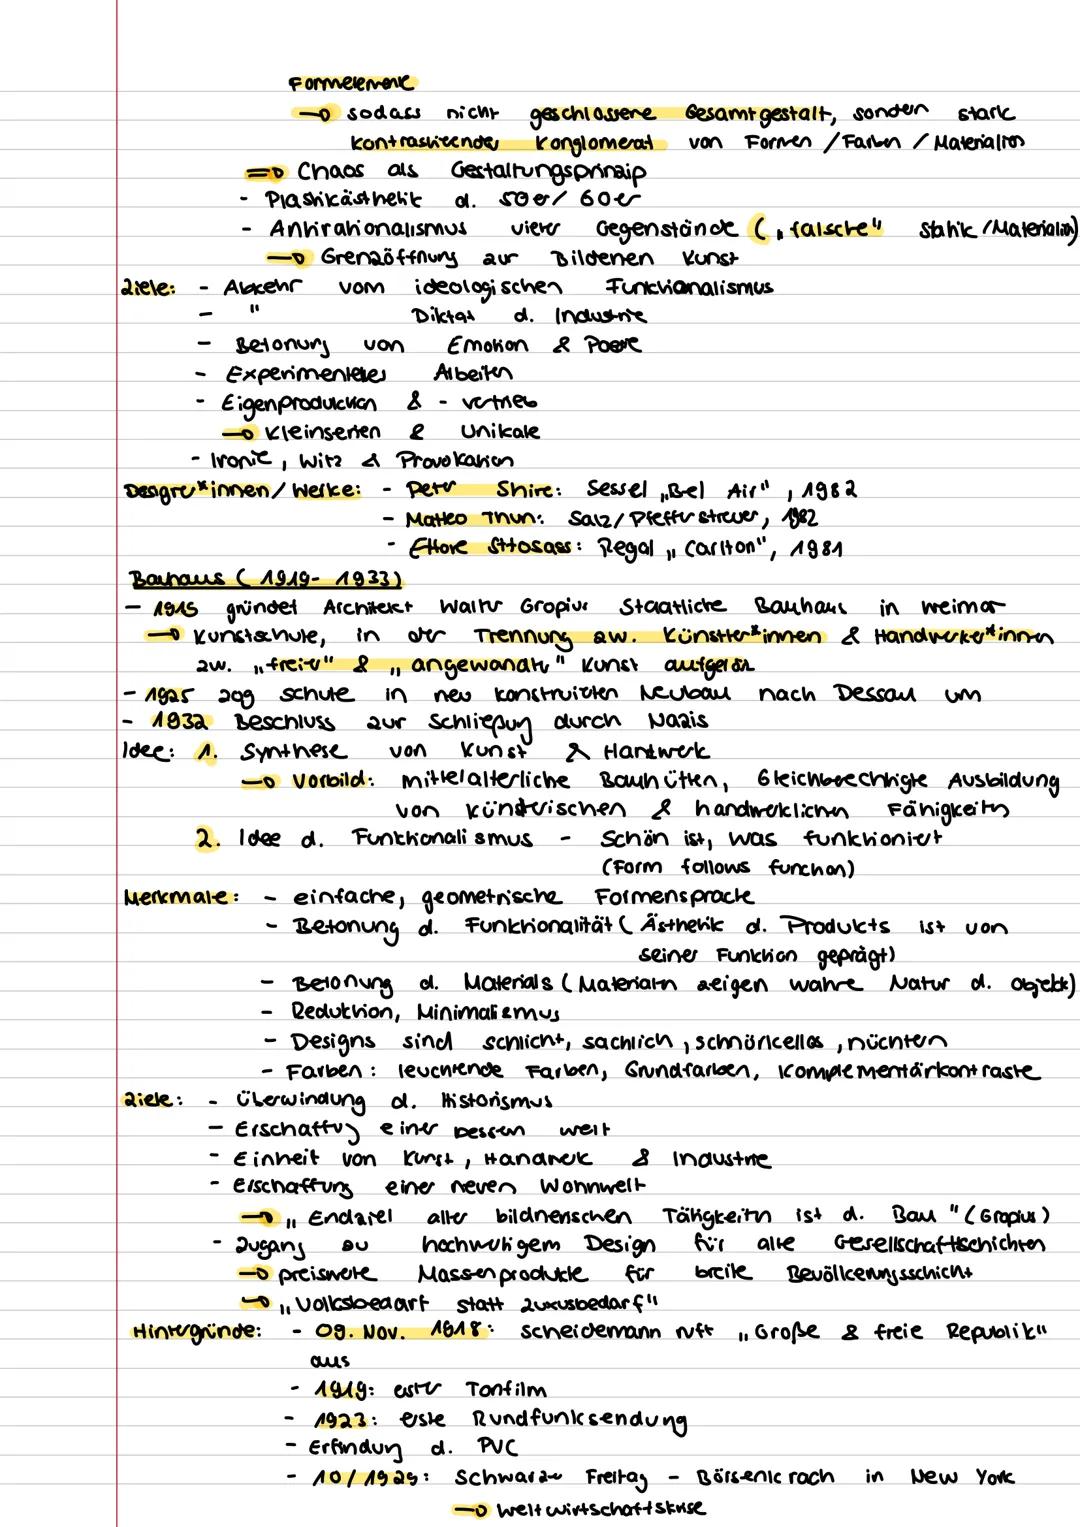 Formelemente
→ sodass nicht geschlossene Gesamtgestalt, sondern stark
kontrastierendes Konglomerat von Formen / Farben / Materialien
⇒ Chaos als Gestaltungsprinzip
- Plastikästhetik d. 50er/ 60er
- Antirationalismus vieler Gegenstände („falsche" Statik/Materialien)
→ Grenzöffnung zur Bildenen Kunst
Ziele: - Abkehr vom ideologischen Funktionalismus
- " Diktat d. Industrie
- Betonung von Emotion & Poesie
- Experimentelles Arbeiten
- Eigenproduktion & - vertrieb
→ Kleinserien & Unikate
- Ironie, Witz & Provokation
Designer*innen/ Werke: - Peter Shire: Sessel „Bel Air", 1982
- Matteo Thun: Salz/Pfefferstreuer, 1982
- Ettore Sttosass: Regal „Carlton", 1981
Bauhaus (1919- 1933)
- 1915 gründet Architekt Walter Gropius Staatliche Bauhaus in Weimar
→ Kunstschule, in der Trennung zw. Künstler*innen & Handwerker*innen
zw. „freier" & „angewandte" Kunst aufgelöst
- 1925 zog Schule in neu konstruierten Neubau nach Dessau um
- 1932 Beschluss zur Schließung durch Nazis
Idee: 1. Synthese von Kunst & Handwerk
→ Vorbild: mittelalterliche Bauhütten, Gleichberechtigte Ausbildung
von künstlerischen & handwerklichen Fähigkeiten
2. Idee d. Funktionalismus - Schön ist, was funktioniert
(Form follows function)
Merkmale: - einfache, geometrische Formensprache
- Betonung d. Funktionalität (Ästhetik d. Produkts ist von
seiner Funktion geprägt)
- Betonung d. Materials (Materialen zeigen wahre Natur d. Objekts)
- Reduktion, Minimalismus
- Designs sind schlicht, sachlich, schnörkellos, nüchtern
- Farben: leuchtende Farben, Grundfarben, Komplementärkontraste
Ziele: - Überwindung d. Historismus
- Erschaffung einer bessen Welt
- Einheit von Kunst, Handwerk & Industrie
- Erschaffung einer neuen Wohnwelt
→ „Endziel aller bildnerischen Tätigkeiten ist d. Bau" (Gropius)
- Zugang zu hochwertigem Design für alle Gesellschaftsschichten
→ preiswerte Massenprodukte für breite Bevölkerungsschicht
→ „Volksbedarf statt Luxusbedarf"
Hintergründe: - 09. Nov. 1918: Scheidemann ruft „Große & freie Republik"
aus
- 1919: erster Tonfilm
- 1923: erste Rundfunksendung
- Erfindung d. PVC
- 10/1929: Schwarzer Freitag - Börsencrach in New York
→ Weltwirtschaftskrise